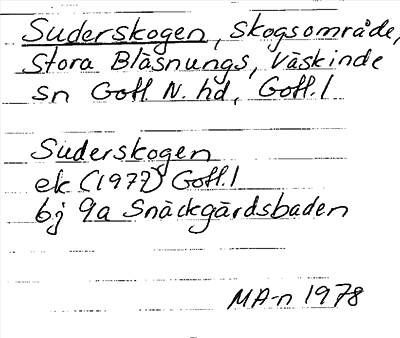 Suderskogen, skogsområde,
Stora Bläsnungs, Väskinde
sn Gotl N. hd, Gotl. l
Suderskogen
ek (1977) Gotl. l
6j 9a Snäckgärdsbaden
MA-n 1978